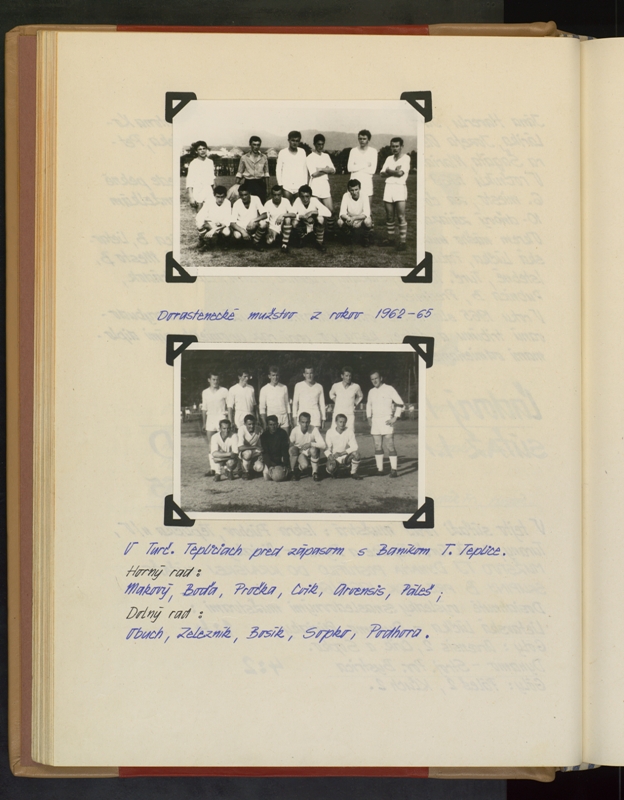 Dorastenecké mužstvo z rokov 1962-65
V Turč. Tepliciach pred zápasom s Baníkom T. Teplice.
Horný rad:
Makový, Boďa, Pročka, Cvik, Arvensis, Páleš;
Dolný rad:
Obuch, Železník, Bosík, Sopko, Podhora.